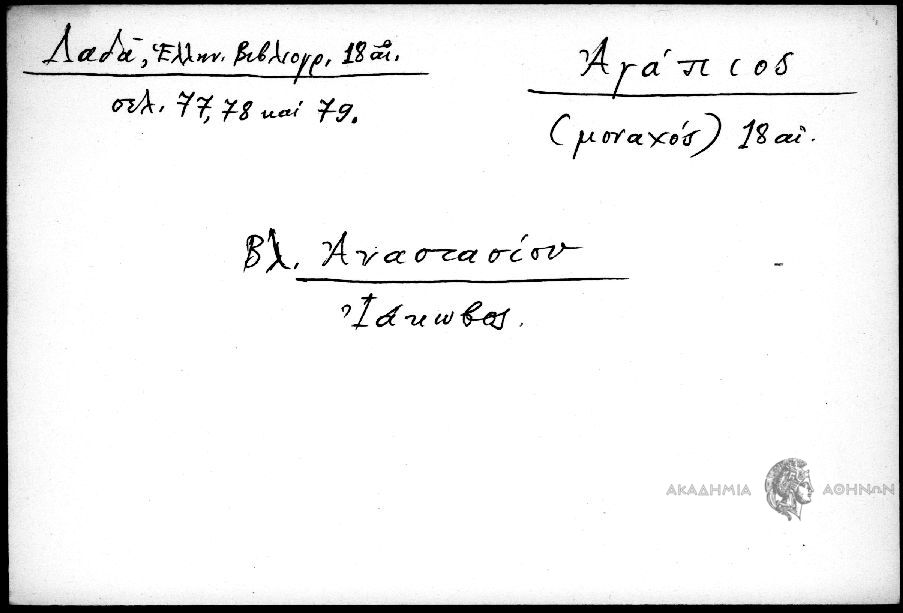 Λαδᾶ, Ἑλλην. Βιβλιογρ. 18 αἰ.
σελ. 77, 78 καί 79.
Ἀγάπιος
(μοναχός) 18 αἰ.
Βλ. Ἀναστασίου
Ἰάκωβος.
ΑΚΑΔΗΜΙΑ ΑΘΗΝΩΝ